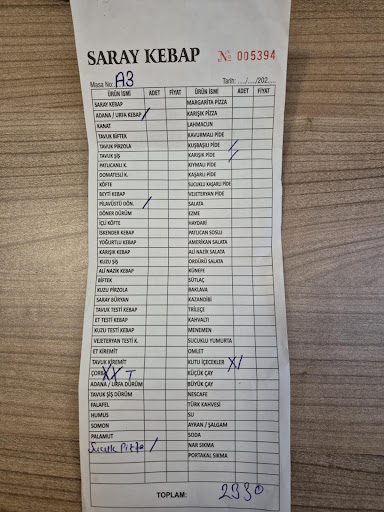 SARAY KEBAP
№ 005394
Masa No: A3
Tarih: ..../..../202....
ÜRÜN İSMİ ADET FİYAT ÜRÜN İSMİ ADET FİYAT
SARAY KEBAP MARGARİTA PİZZA
ADANA / URFA KEBAP / KARIŞIK PİZZA
KANAT LAHMACUN
TAVUK BİFTEK KAVURMALI PİDE
TAVUK PİRZOLA KUŞBAŞILI PİDE /
TAVUK ŞİŞ KARIŞIK PİDE /
PATLICANLI K. KIYMALI PİDE
DOMATESLİ K. KAŞARLI PİDE
KÖFTE SUCUKLU KAŞARLI PİDE
BEYTİ KEBAP VEJETERYAN PİDE
PİLAVÜSTÜ DÖN. / SALATA
DÖNER DÜRÜM EZME
İÇLİ KÖFTE HAYDARİ
İSKENDER KEBAP PATLICAN SOSLU
YOĞURTLU KEBAP AMERİKAN SALATA
KARIŞIK KEBAP ALİ NAZİK SALATA
KUZU ŞİŞ ORDÜBÜ SALATA
ALİ NAZİK KEBAP KÜNEFE
BİFTEK SÜTLAÇ
KUZU PİRZOLA BAKLAVA
SARAY BÜRYAN KAZANDİBİ
TAVUK TESTİ KEBAP TRİLEÇE
ET TESTİ KEBAP KAHVALTI
KUZU TESTİ KEBAP MENEMEN
VEJETERYAN TESTİ K. SUCUKLU YUMURTA
ET KİREMİT OMLET
TAVUK KİREMİT KUTU İÇECEKLER X/
ÇORBA XX T KÜÇÜK ÇAY
ADANA / URFA DÜRÜM BÜYÜK ÇAY
TAVUK ŞİŞ DÜRÜM NESCAFE
FALAFEL TÜRK KAHVESİ
HUMUS SU
SOMON AYRAN / ŞALGAM
PALAMUT SODA
Sucuk Pizza / NAR SIKMA
PORTAKAL SIKMA
TOPLAM: 2930